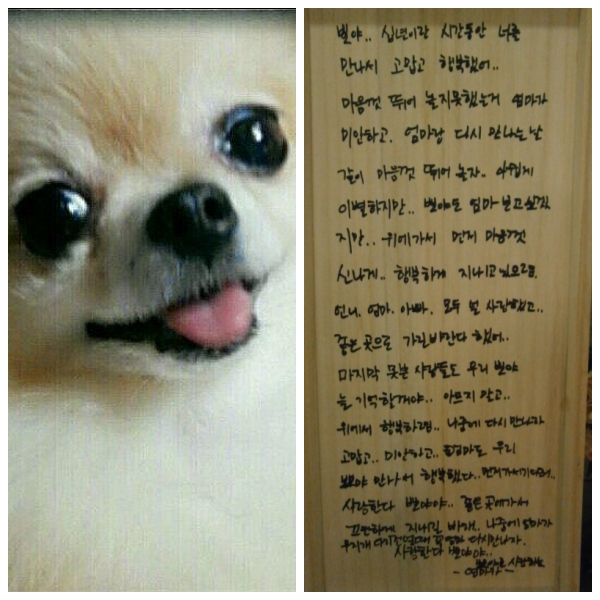 뽀야.. 십년이란 시간동안 너를
만나서 고맙고 행복했어..
마음껏 뛰어 놀지못했는거 엄마가
미안하고. 엄마랑 다시 만나는날
같이 마음껏 뛰어 놀자.. 아쉽게
이별하지만.. 뽀야도 엄마 보고싶겠
지만.. 위에가서 먼저 마음껏
신나게.. 행복하게 지내고있으렴.
언니. 엄마. 아빠. 모두 널 사랑했고..
좋은 곳으로 가길바란다 했어..
마지막 못본 사람들도 우리 뽀야
늘 기억할꺼야.. 아프지 말고..
위에서 행복하렴.. 나중에 다시 만나자
고맙고.. 미안하고.. 엄마도 우리
뽀야 만나서 행복했다.. 먼저가서기다려..
사랑한다 뽀야야.. 좋은곳에가서
꼬만하게 지내길 바래.. 나중에 엄마가
무지개 다리건널때 꼭 다시만나자.
사랑한다 뽀야야..
사랑하는